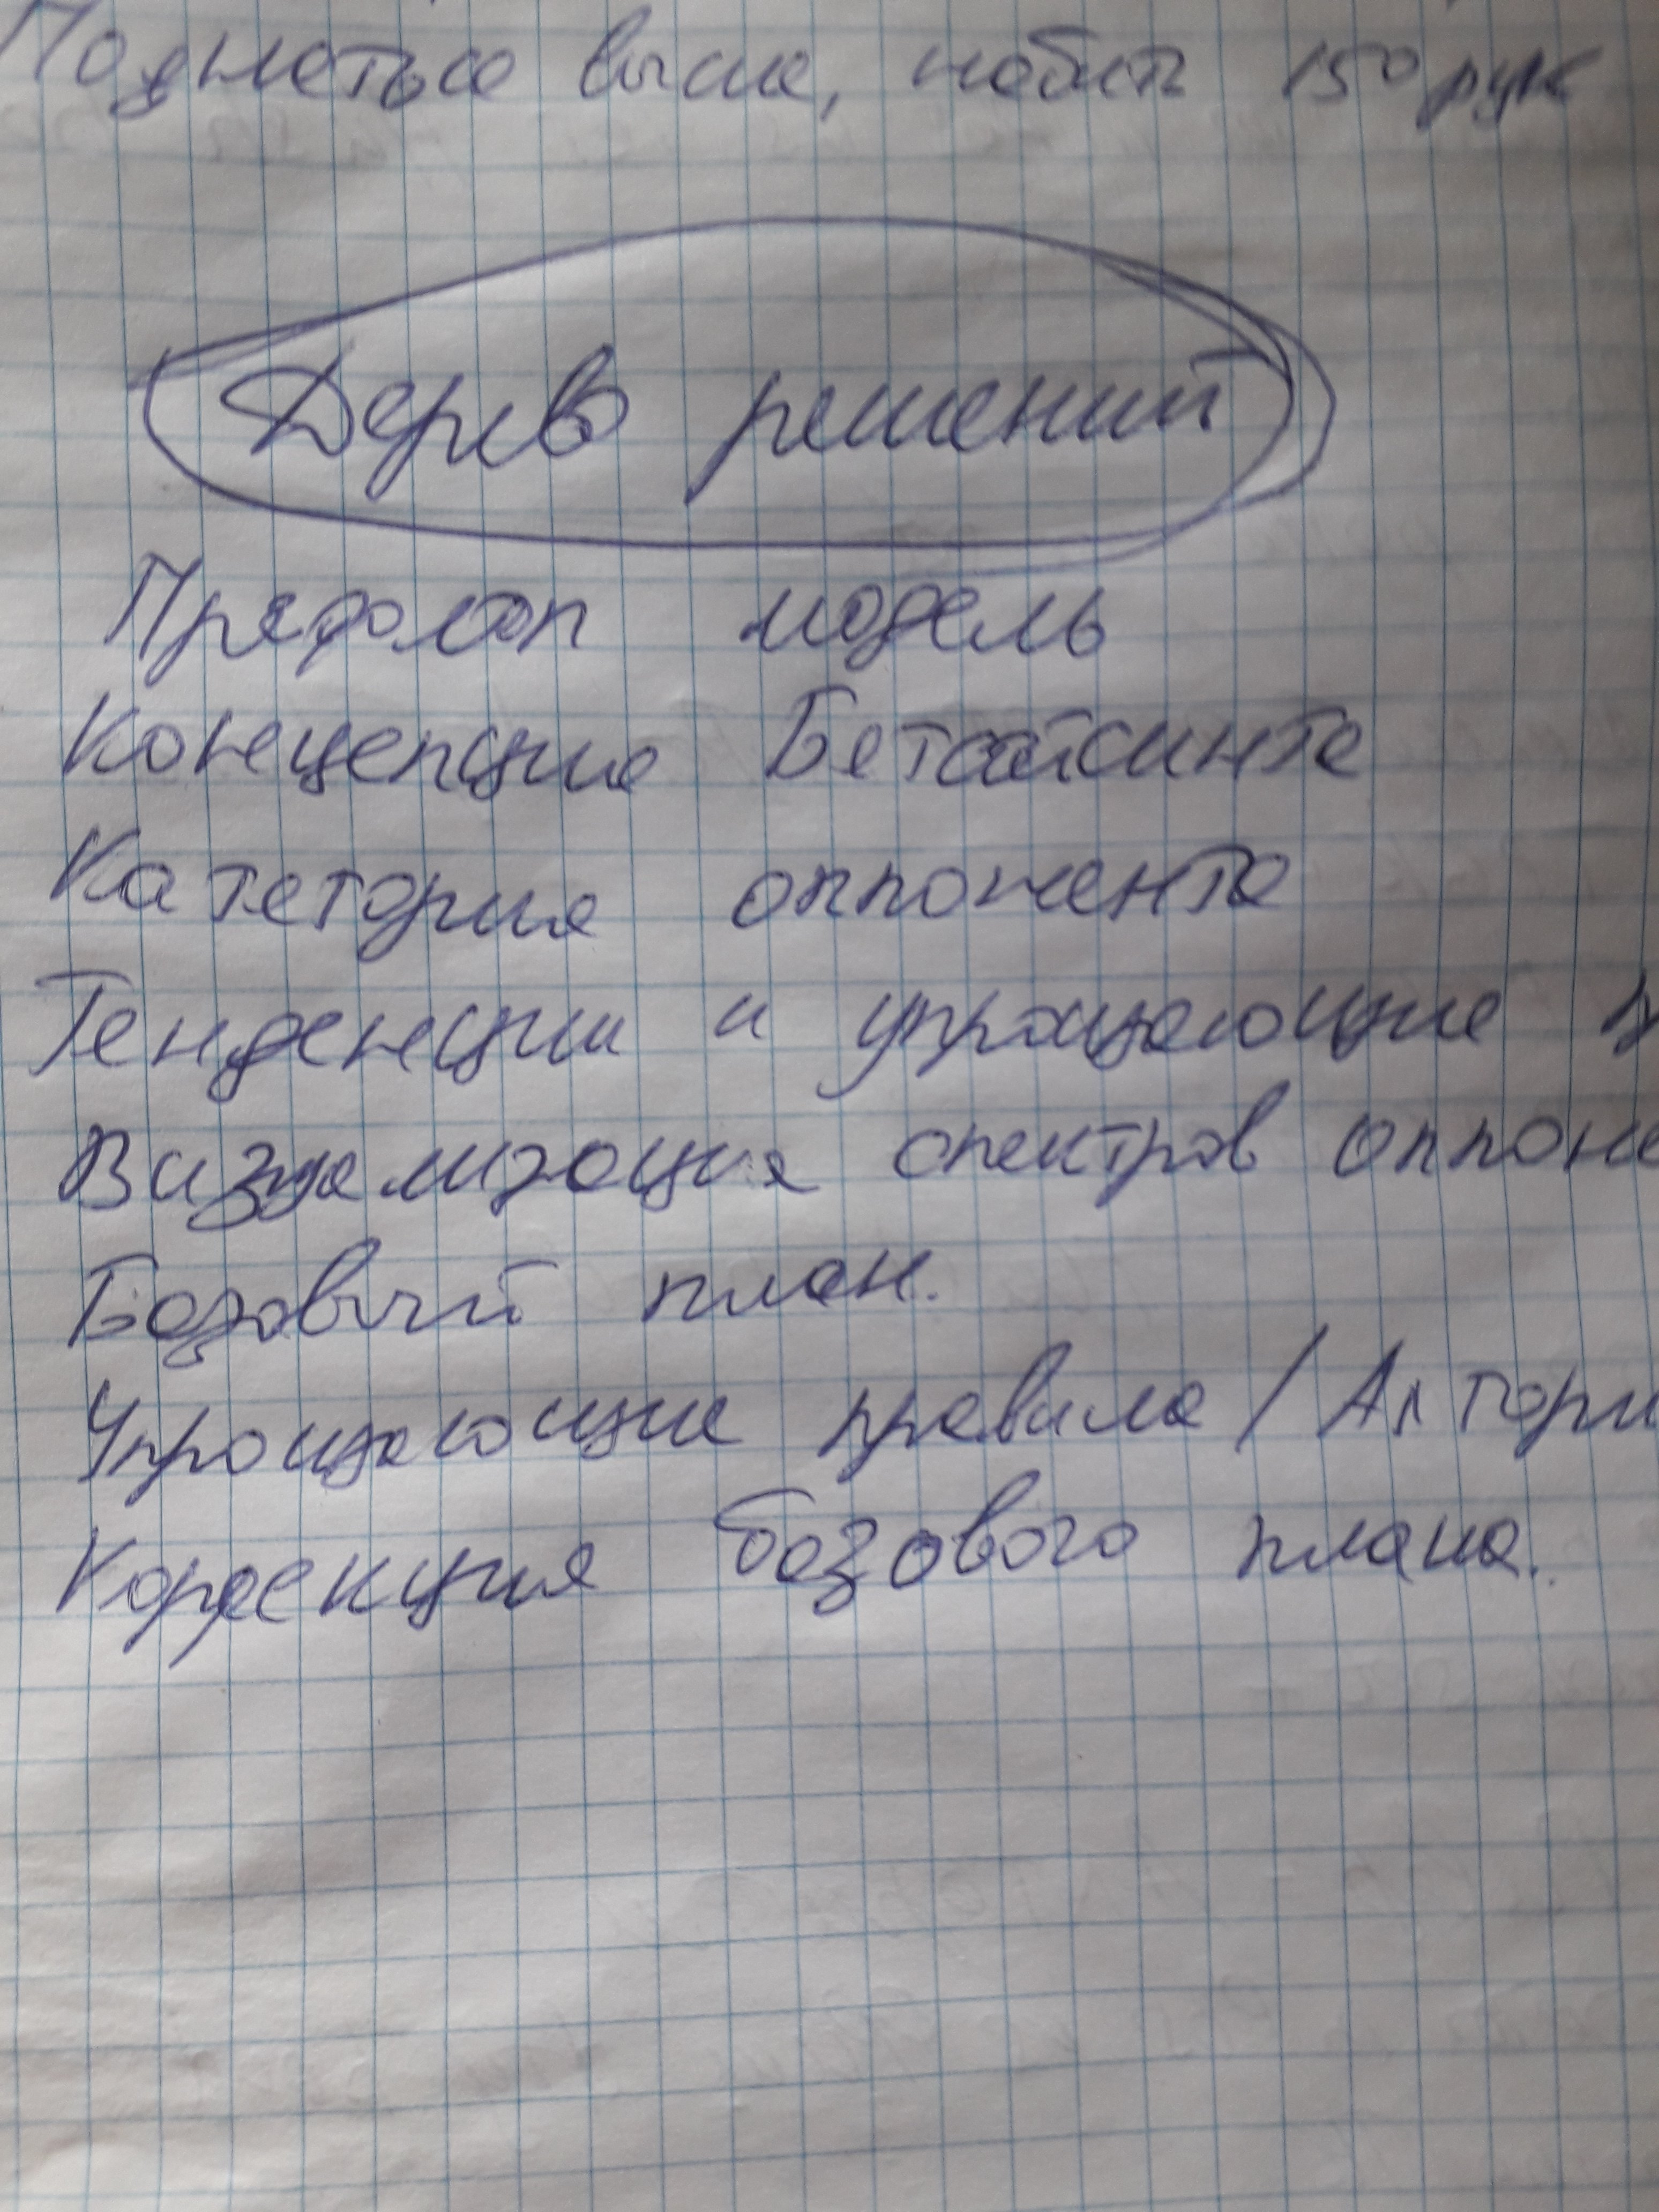 Подняться выше, набить 150 рук
Дерево решений
Префлоп модель
Концепция Бетсайзинга
Категория оппонента
Тенденции и упрощающие
Визуализация спектров оппоне
Базовый план.
Упрощающие правила / Алгори
Коррекция базового плана.